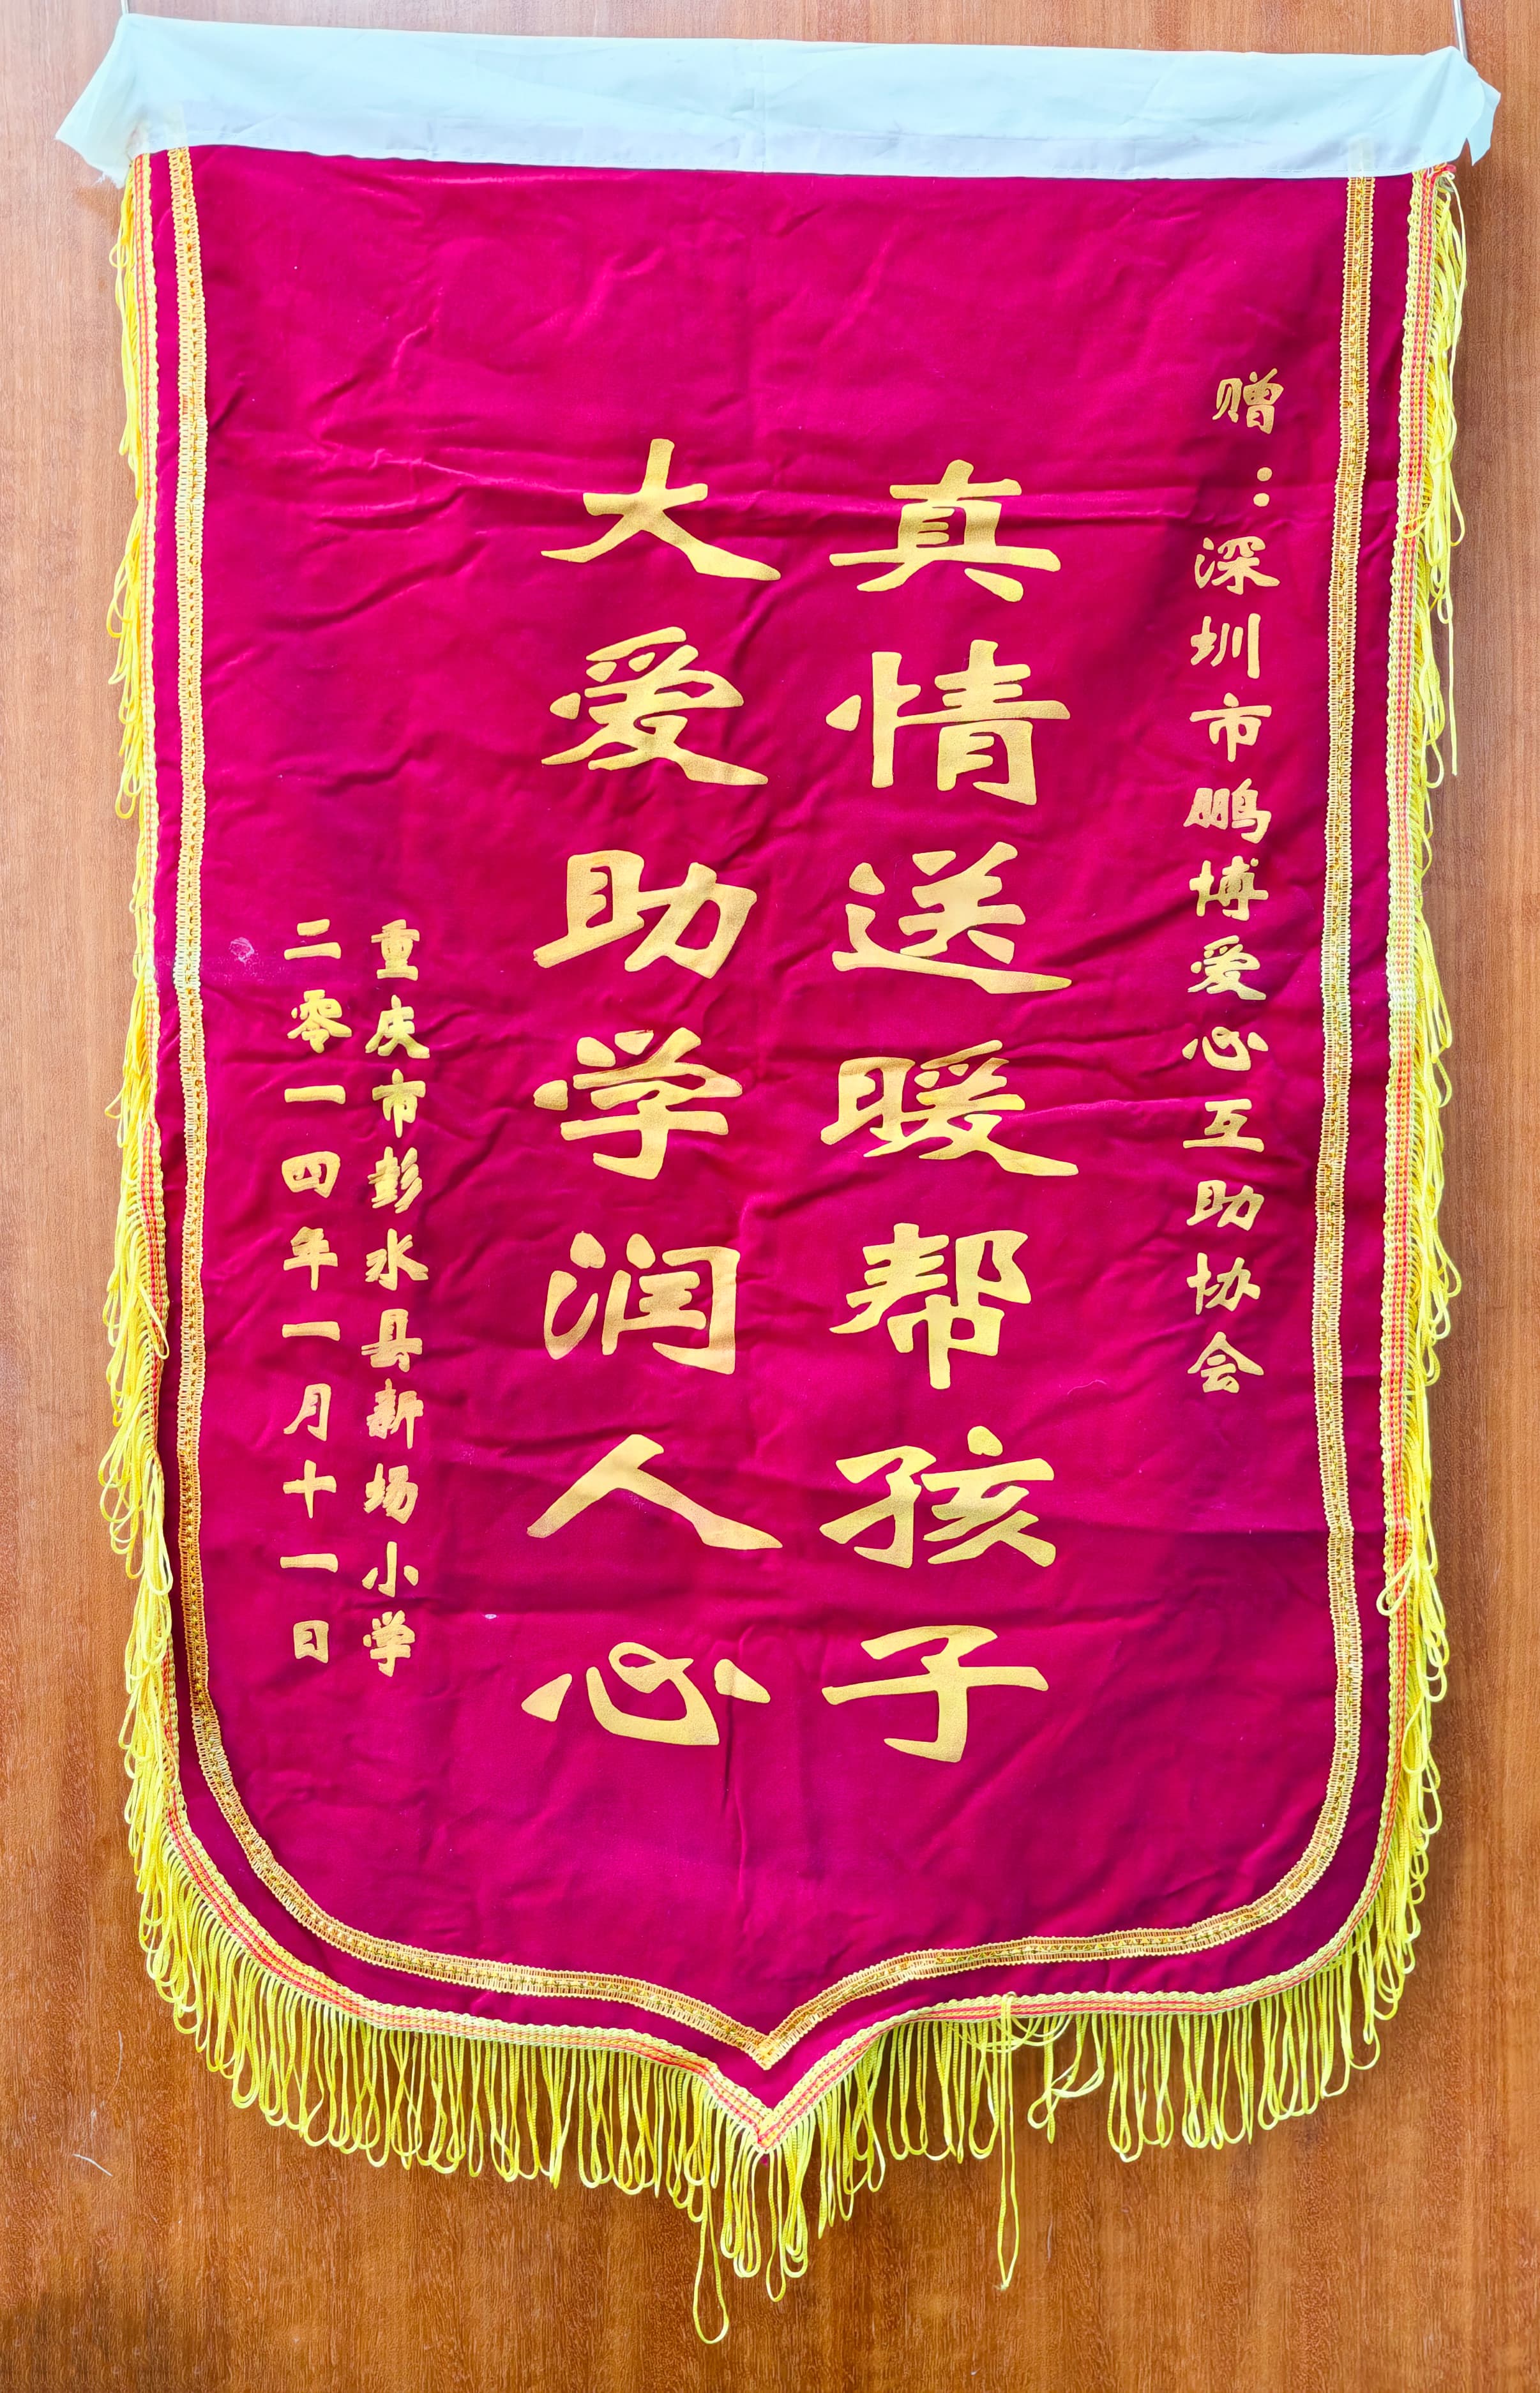 赠：深圳市鹏博爱心互助协会
真情送暖帮孩子
大爱助学润人心
重庆市彭水县新场小学
二零一四年一月十一日